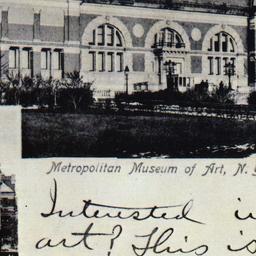 Metropolitan Museum of Art, N.
Interested
art? This is